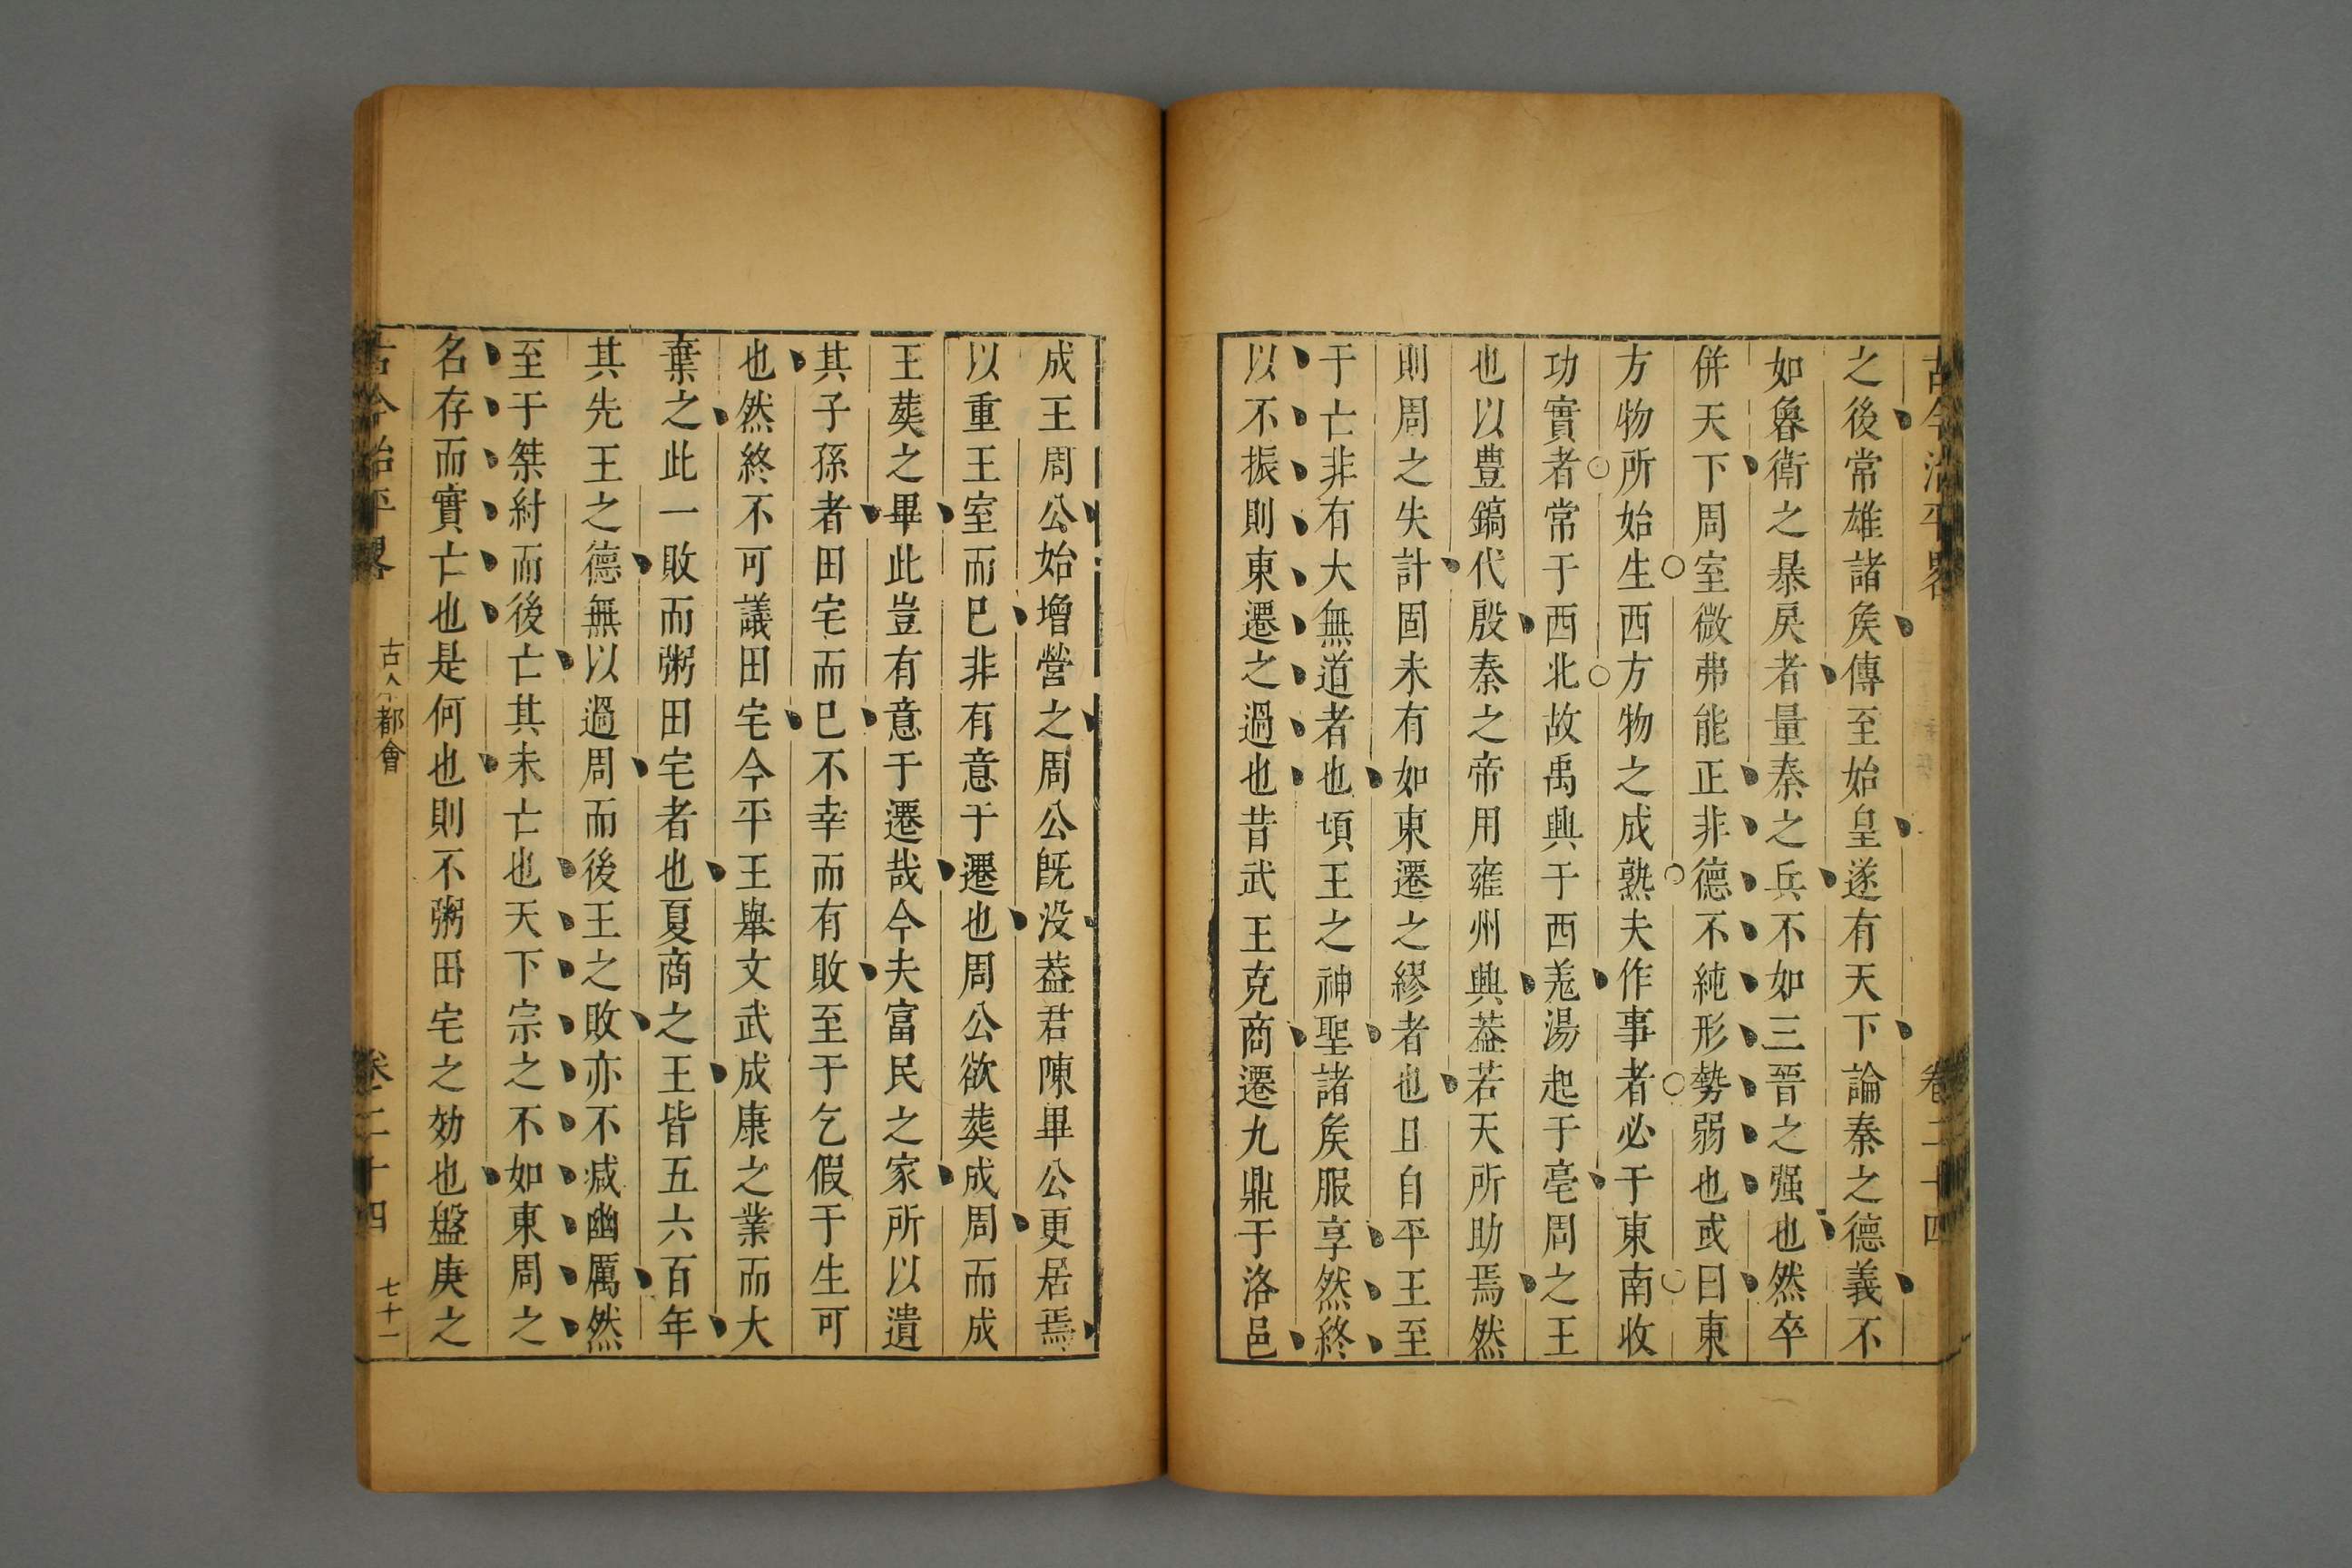 古今治平畧 卷二十四
之後常雄諸矦傳至始皇遂有天下論秦之德義不
如魯衛之暴戾者量秦之兵不如三晉之强也然卒
併天下周室微弗能正非德不純形勢弱也或曰東
方物所始生西方物之成熟夫作事者必于東南收
功實者常于西北故禹興于西羗湯起于亳周之王
也以豊鎬伐殷秦之帝用雍州興葢若天所助焉然
則周之失計固未有如東遷之繆者也且自平王至
于亡非有大無道者也頃王之神聖諸矦服享然終
以不振則東遷之過也昔武王克商遷九鼎于洛邑
成王周公始增營之周公旣没葢君陳畢公更居焉
以重王室而已非有意于遷也周公欲葬成周而成
王葬之畢此豈有意于遷哉今夫富民之家所以遺
其子孫者田宅而已不幸而有敗至于乞假于生可
也然終不可議田宅今平王舉文武成康之業而大
棄之此一敗而粥田宅者也夏商之王皆五六百年
其先王之德無以過周而後王之敗亦不减幽厲然
至于桀紂而後亡其未亡也天下宗之不如東周之
名存而實亡也是何也則不粥田宅之効也盤庚之
古今治平畧 古今都會 卷二十四 七十一